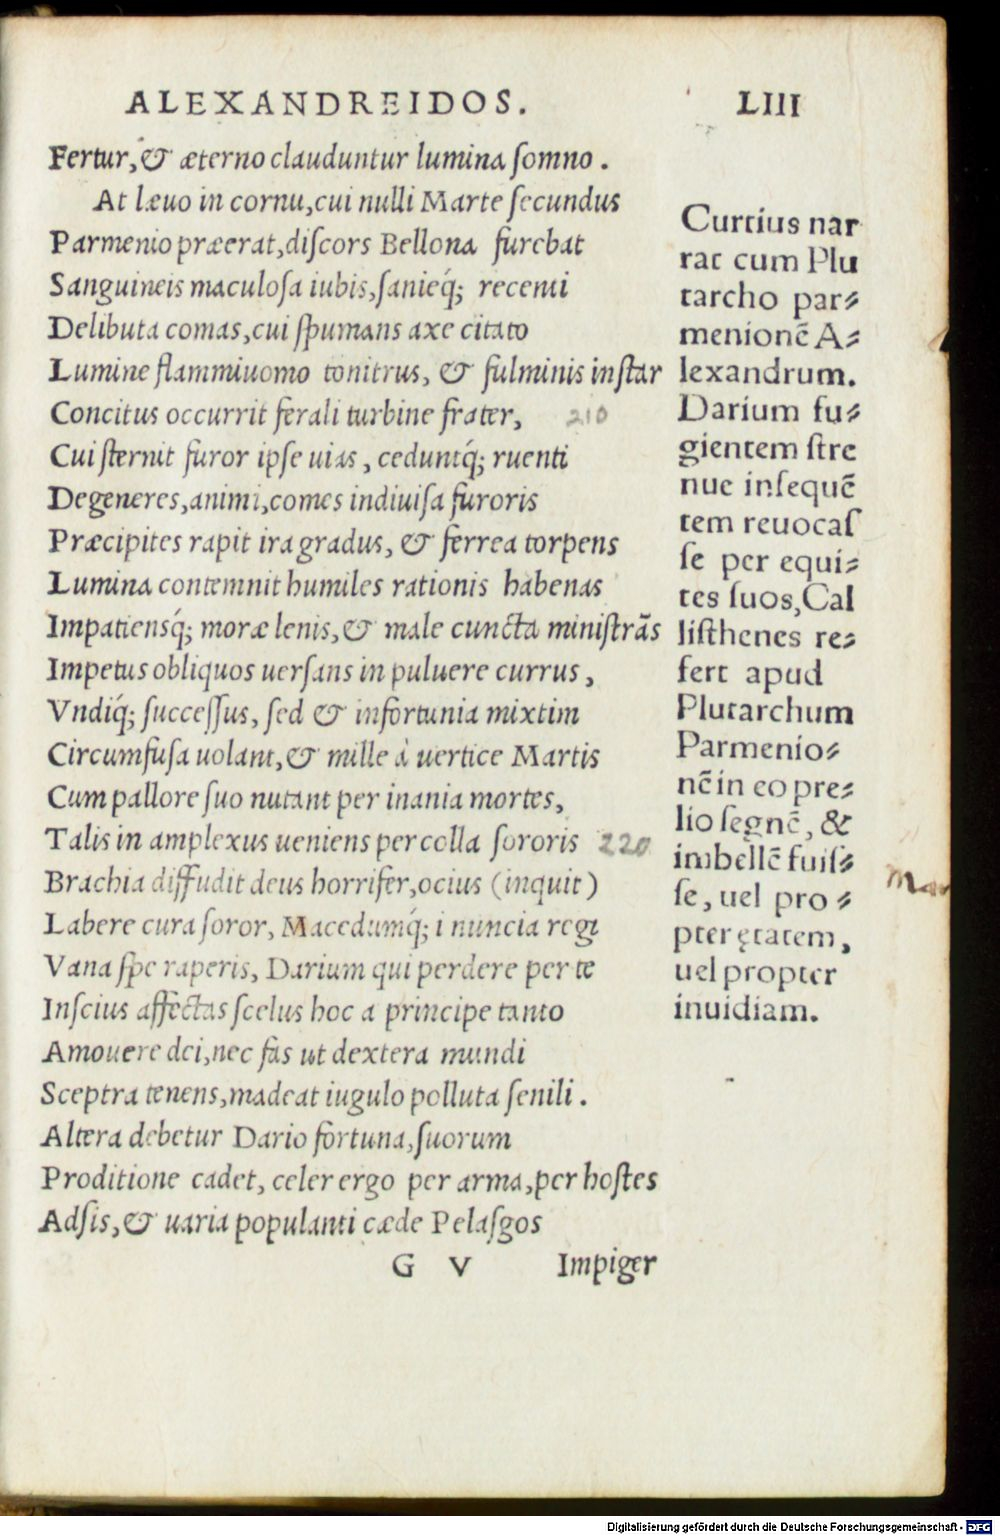 ALEXANDREIDOS. LIII
Fertur, & æterno clauduntur lumina somno.
At læuo in cornu, cui nulli Marte secundus
Parmenio præerat, discors Bellona furebat
Sanguineis maculosa iubis, sanieq́; recenti
Delibuta comas, cui spumans axe citato
Lumine flammiuomo tonitrus, & fulminis instar
Concitus occurrit ferali turbine frater, 210
Cui sternit furor ipse uias, ceduntq́; ruenti
Degeneres, animi, comes indiuisa furoris
Præcipites rapit ira gradus, & ferrea torpens
Lumina contemnit humiles rationis habenas
Impatiensq́; moræ lenis, & male cuncta ministrās
Impetus obliquos uersans in puluere currus,
Vndiq́; successus, sed & infortunia mixtim
Circumfusa uolant, & mille à uertice Martis
Cum pallore suo nutant per inania mortes,
Talis in amplexus ueniens per colla sororis 220
Brachia diffudit deus horrifer, ocius (inquit)
Labere cura soror, Macedumq́; i nuncia regi
Vana spe raperis, Darium qui perdere per te
Inscius affectas scelus hoc a principe tanto
Amouere dei, nec fas ut dextera mundi
Sceptra tenens, madeat iugulo polluta senili.
Altera debetur Dario fortuna, suorum
Proditione cadet, celer ergo per arma, per hostes
Adsis, & uaria populanti cæde Pelasgos
G V Impiger
Curtius nar
rat cum Plu
tarcho par⸗
menionē A⸗
lexandrum.
Darium fu⸗
gientem stre
nue insequē
tem reuocas
se per equi⸗
tes suos, Cal
listhenes re⸗
fert apud
Plutarchum
Parmenio⸗
nē in eo pre⸗
lio segnē, &
imbellē fuis⸗
se, uel pro⸗
pter ętatem,
uel propter
inuidiam.
Digitalisierung gefördert durch die Deutsche Forschungsgemeinschaft - DFG